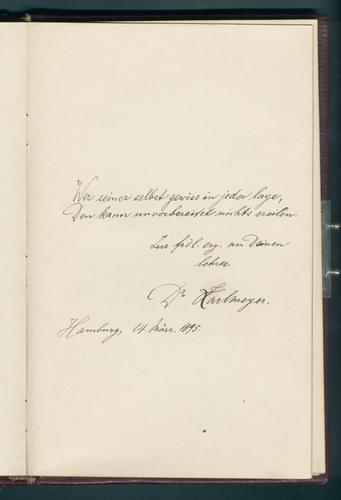 Wer seiner selbst gewiss in jeder lage,
Den kann unvorbereitet nichts ereilen.
Zur frdl. erg. an Deinen
lehrer
Dr Karlmeyer.
Hamburg, 24. März. 1895.